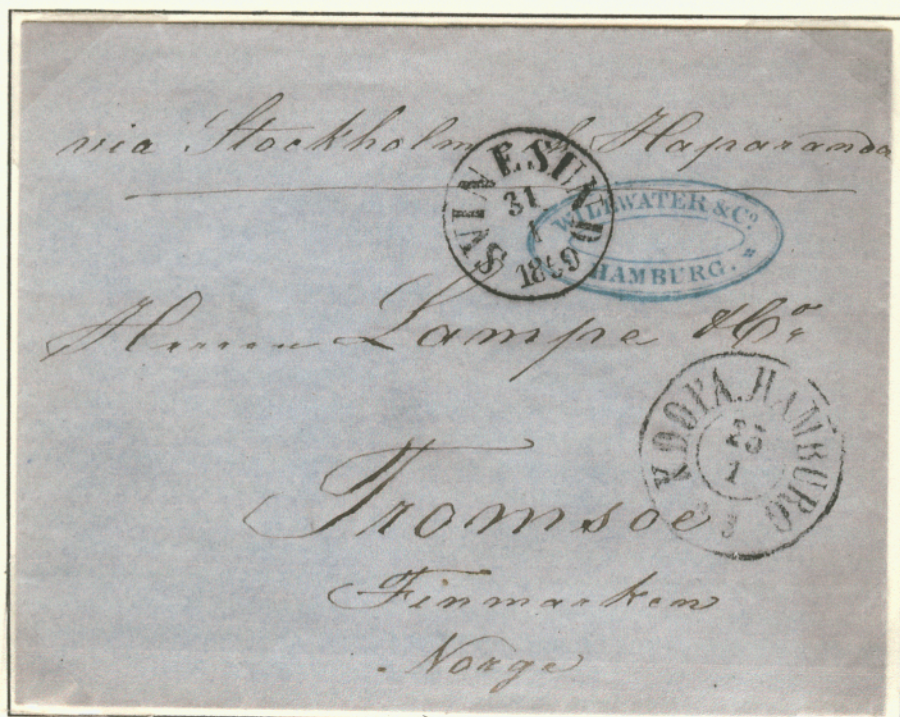 via Stockholm & Haparanda
SVINESUND
31
1
1859
WILLWATER & Co.
HAMBURG.
Herren Lampe & Co
K.D.O.P.A. HAMBURG
25
1
Tromsoe
Finmarken
Norge